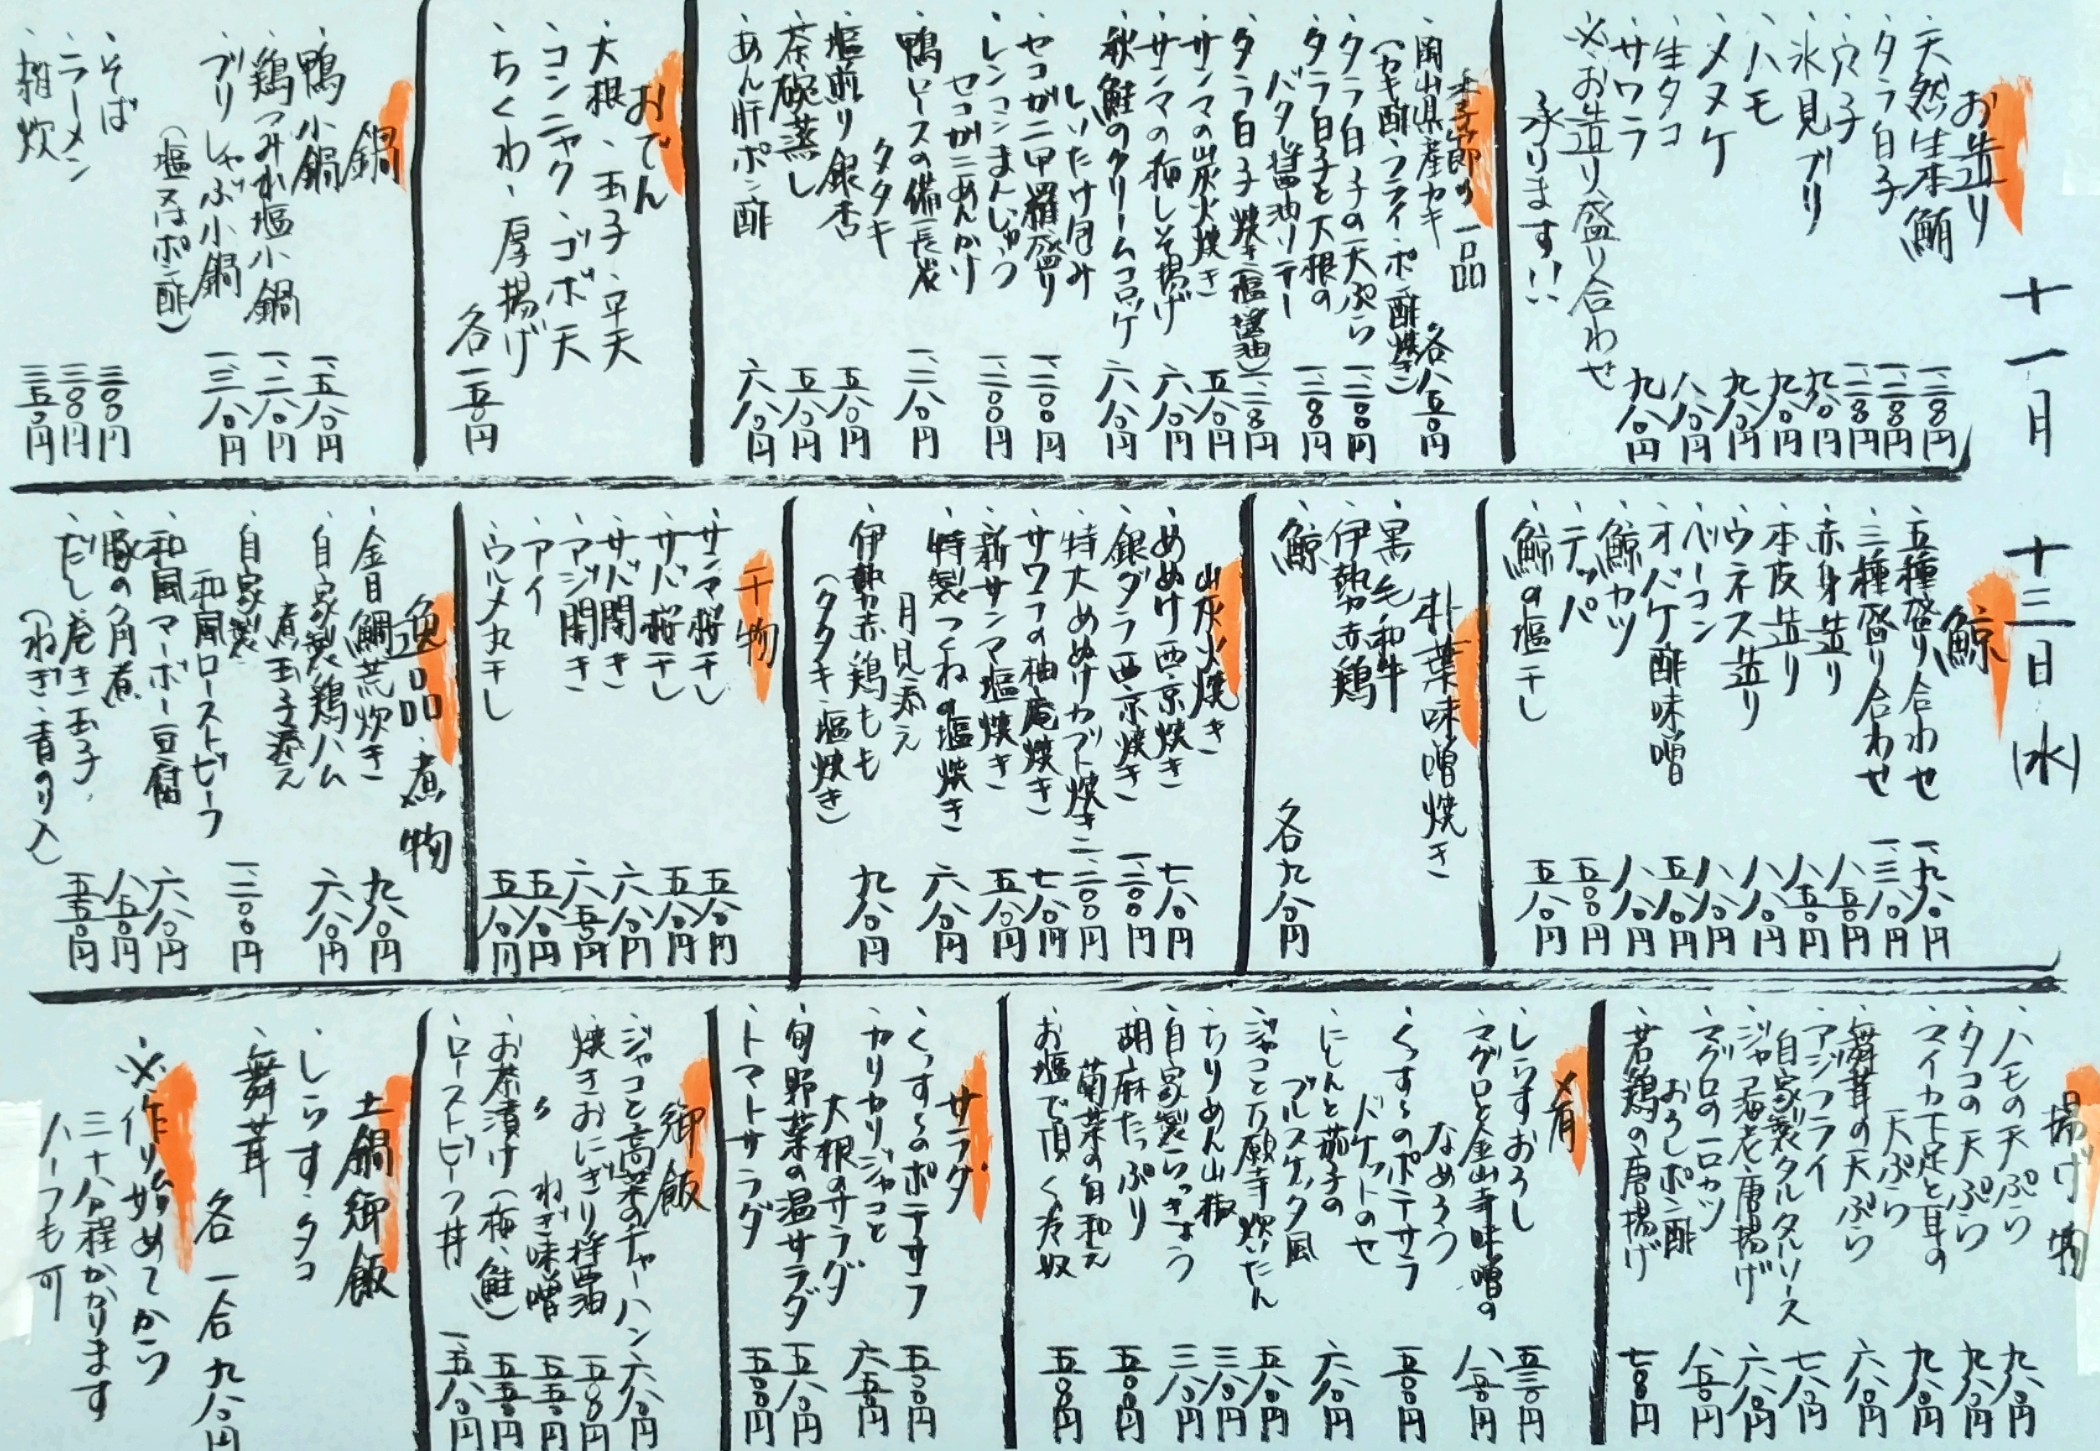 十一月 十三日(水)
お造り
・天然生本鮪 一、二八〇円
・タラ白子 一、二八〇円
・穴子 一、二八〇円
・氷見ブリ 九八〇円
・ハモ 九八〇円
・メヌケ 九八〇円
・生タコ 八八〇円
・サワラ 九八〇円
※お造り盛り合わせ
承ります!!
季節の一品
・岡山県産カキ 各八五〇円
(カキ酢・フライ・ポン酢焼き)
・タラ白子の天ぷら 一、二八〇円
・タラ白子と大根の
バター醤油ソテー 一、二八〇円
・タラ白子焼き(塩・醤油) 一、二八〇円
・サンマの炭火焼き 五八〇円
・サンマの梅しそ揚げ 六八〇円
・秋鮭のクリームコロッケ 六八〇円
しいたけ包み
・セコガニ甲羅盛り 一、二〇〇円
・レンコンまんじゅう
セコガニあんかけ 一、二〇〇円
・鴨ロースの備長炭
タタキ 一、二八〇円
・塩煎り銀杏 五八〇円
・茶碗蒸し 五八〇円
・あん肝ポン酢 六八〇円
おでん
・大根・玉子・平天
・コンニャク・ゴボ天
・ちくわ・厚揚げ
各一五〇円
鍋
・鴨小鍋 一、五八〇円
・鶏つみれ塩小鍋 一、二八〇円
・ブリしゃぶ小鍋 一、三八〇円
(塩又はポン酢)
・そば 三〇〇円
・ラーメン 三〇〇円
・雑炊 三五〇円
鯨
・五種盛り合わせ 一、九八〇円
・三種盛り合わせ 一、三八〇円
・赤身造り 八五〇円
・本皮造り 八五〇円
・ウネス造り 八八〇円
・ベーコン 八八〇円
・オバケ酢味噌 五八〇円
・鯨カツ 八八〇円
・テッパ 五〇〇円
・鯨の塩干し 五八〇円
朴葉味噌焼き
・黒毛和牛
・伊勢赤鶏
・鯨
各九八〇円
炭火焼き
・めぬけ西京焼き 七八〇円
・銀ダラ西京焼き 一、二〇〇円
・特大めぬけカブト焼き 二、二〇〇円
・サワラの柚庵焼き 七八〇円
・新サンマ塩焼き 五八〇円
・特製つくねの塩焼き 六八〇円
月見添え
・伊勢赤鶏もも 九八〇円
(タタキ・塩焼き)
干物
・サンマ桜干し 五八〇円
・サバ桜干し 五八〇円
・サバ開き 六八〇円
・アジ開き 六五〇円
・アイ 五八〇円
・ウルメ丸干し 五八〇円
逸品・煮物
・金目鯛荒炊き 九八〇円
・自家製鶏ハム 六八〇円
煮玉子添え
・自家製
和風ローストビーフ 一、二〇〇円
・和風マーボー豆腐 六八〇円
・豚の角煮 八五〇円
・だし巻き玉子 五五〇円
(ねぎ・青のり入)
揚げ物
・ハモの天ぷら 九八〇円
・タコの天ぷら 九八〇円
・マイカ下足と耳の
天ぷら 九八〇円
・舞茸の天ぷら 六八〇円
・アジフライ
自家製タルタルソース 七八〇円
・ジャコ海老唐揚げ 六八〇円
・マグロの一口カツ
おろしポン酢 八五〇円
・若鶏の唐揚げ 七〇〇円
肴
・しらすおろし 五三〇円
・マグロと金山寺味噌の
なめろう 八五〇円
・くっすーのポテサラ
バケットのせ 五〇〇円
・にしんと茄子の
ブルスケッタ風 六八〇円
・ジャコと万願寺炊いたん 五八〇円
・ちりめん山椒 三八〇円
・自家製らっきょう 三八〇円
・胡麻たっぷり
菊菜の白和え 五〇〇円
・お塩で頂くざる奴 五〇〇円
サラダ
・くっすーのポテサラ 五〇〇円
・カリカリジャコと
大根のサラダ 六五〇円
・旬野菜の温サラダ 五八〇円
・トマトサラダ 五〇〇円
御飯
・ジャコと高菜のチャーハン 六八〇円
・焼きおにぎり 醤油 五〇〇円
・〃 ねぎ味噌 五五〇円
・お茶漬け(梅、鮭) 五五〇円
・ローストビーフ丼 一、五八〇円
土鍋御飯
・しらす・タコ
・舞茸
各一合九八〇円
※作り始めてから
三十分程かかります
ハーフも可